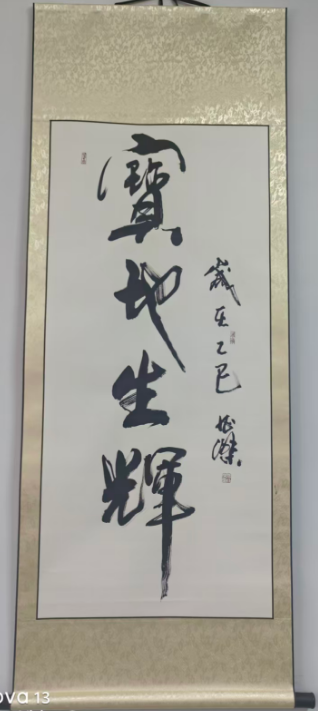 寶地生輝
歲在乙巳
ova 13